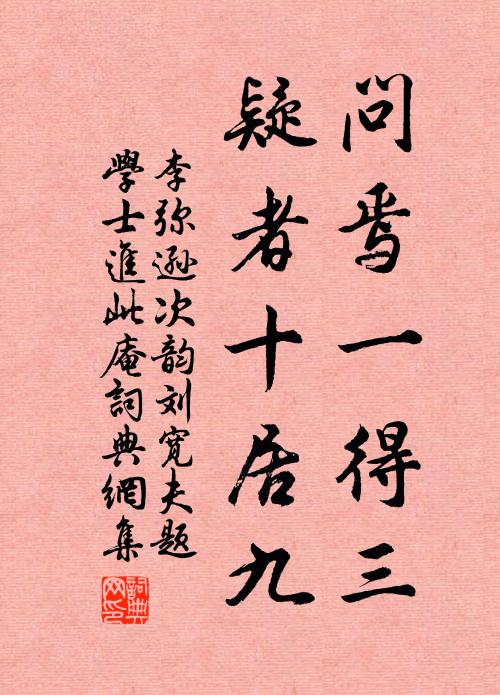 問焉一得三
疑者十居九
李弥逊次韵刘宽夫题
學士進此庵詞典網集
詞典网印